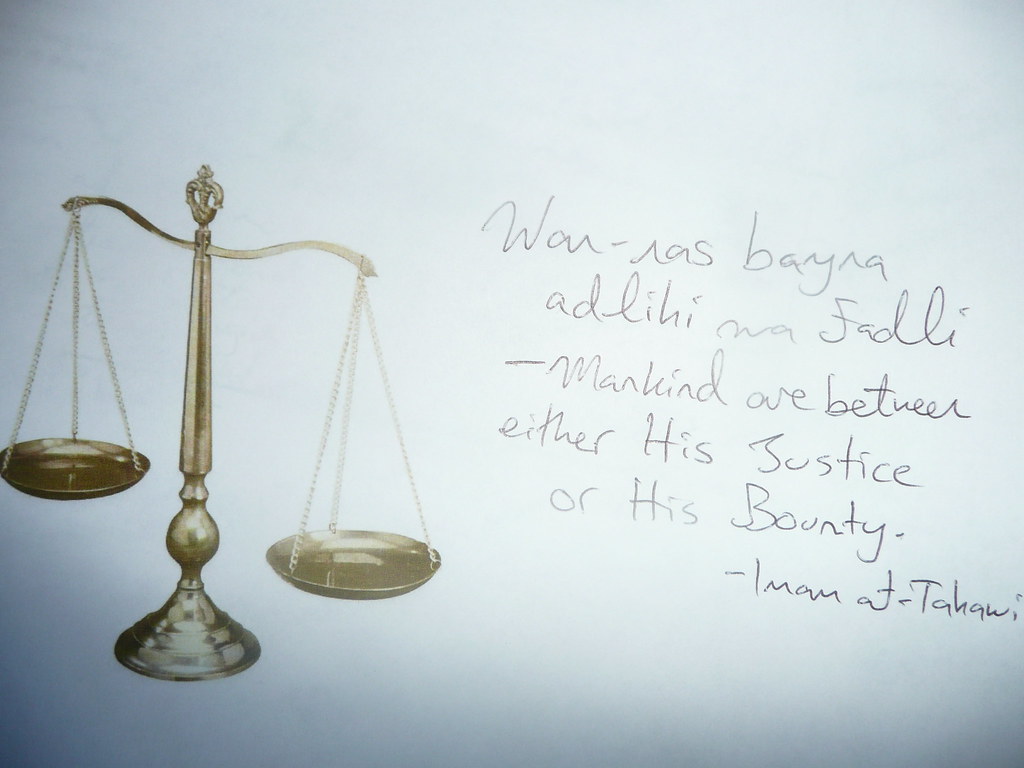 Wan-nas bayna
adlihi wa Fadli
- Mankind are between
either His Justice
or His Bounty.
- Imam at-Tahawi